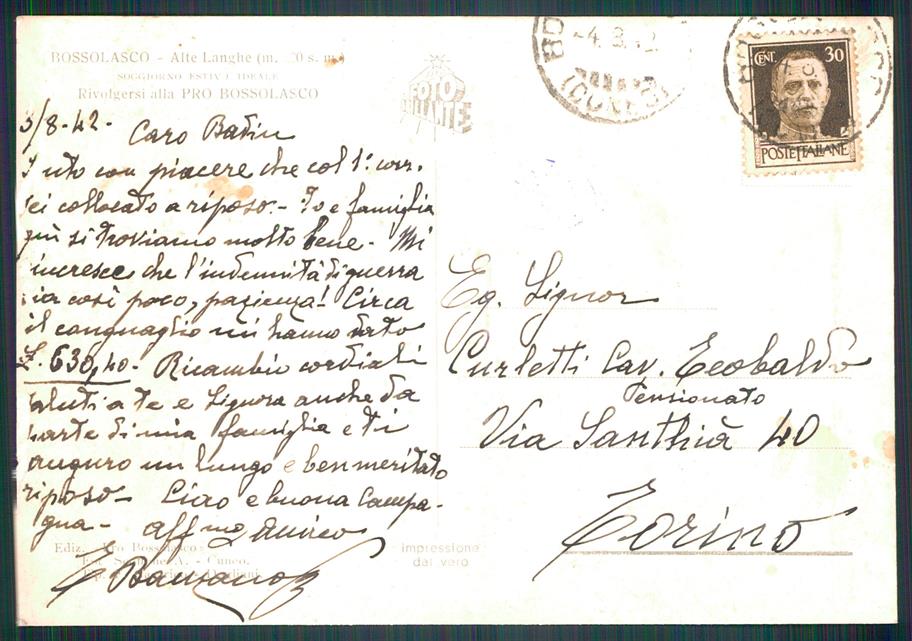 BOSSOLASCO - Alte Langhe (m. 20 s. m.)
SOGGIORNO ESTIVO IDEALE
Rivolgersi alla PRO BOSSOLASCO
FOTO
BRILLANTE
-4.8.
(CUNEO)
CENT. 30
POSTE ITALIANE
3/8-42-
Caro
con piacere che col 1° corr.
sei collocato a riposo.- Io e famiglia
qui si troviamo molto bene - Mi
incresce che l'indennità di guerra
sia così poco, pazienza! Circa
il conguaglio mi hanno dato
£. 630,40- Ricambio cordiali
saluti a te e Signora anche da
parte di mia famiglia e ti
auguro un lungo e ben meritato
riposo- Ciao e buona Campa-
gna - affmo Amico
Eg. Signor
Curletti Cav. Teobaldo
Pensionato
Via Santhià 40
Torino
Ediz. Pro Bossolasco
Cuneo.
Impressione
dal vero